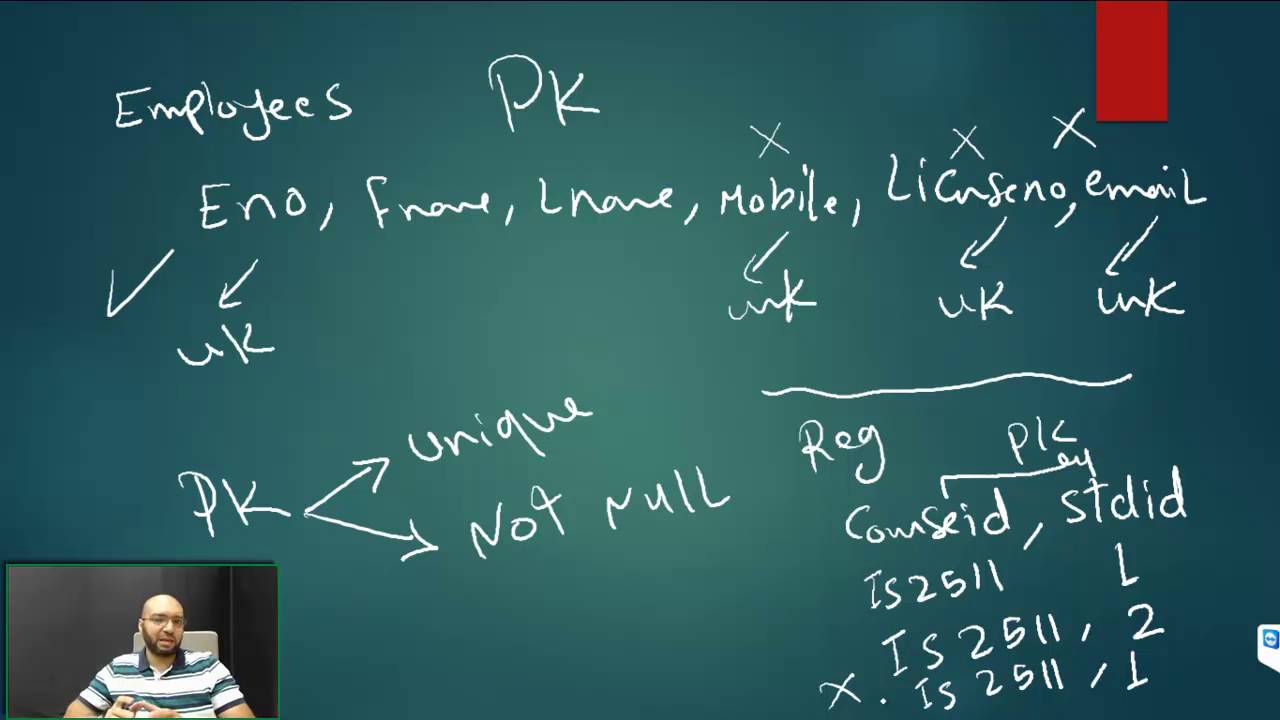 Employees PK
X X X
Eno, Fname, Lname, Mobile, Licenseno, email
uk uk uk uk
PK unique
Not NULL
Reg PK
Courseid, stdid
Is2511 1
Is 2511, 2
X. Is 2511, 1